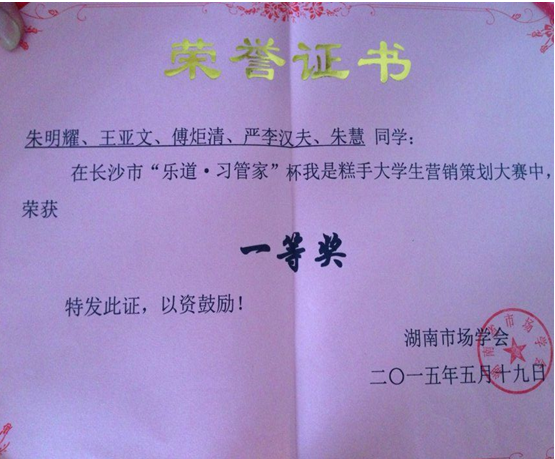 荣誉证书
朱明耀、王亚文、傅炬清、严李汉夫、朱慧 同学：
在长沙市“乐道·习管家”杯我是糕手大学生营销策划大赛中，
荣获
一等奖
特发此证，以资鼓励！
湖南市场学会
二〇一五年五月十九日
湖南市场学会